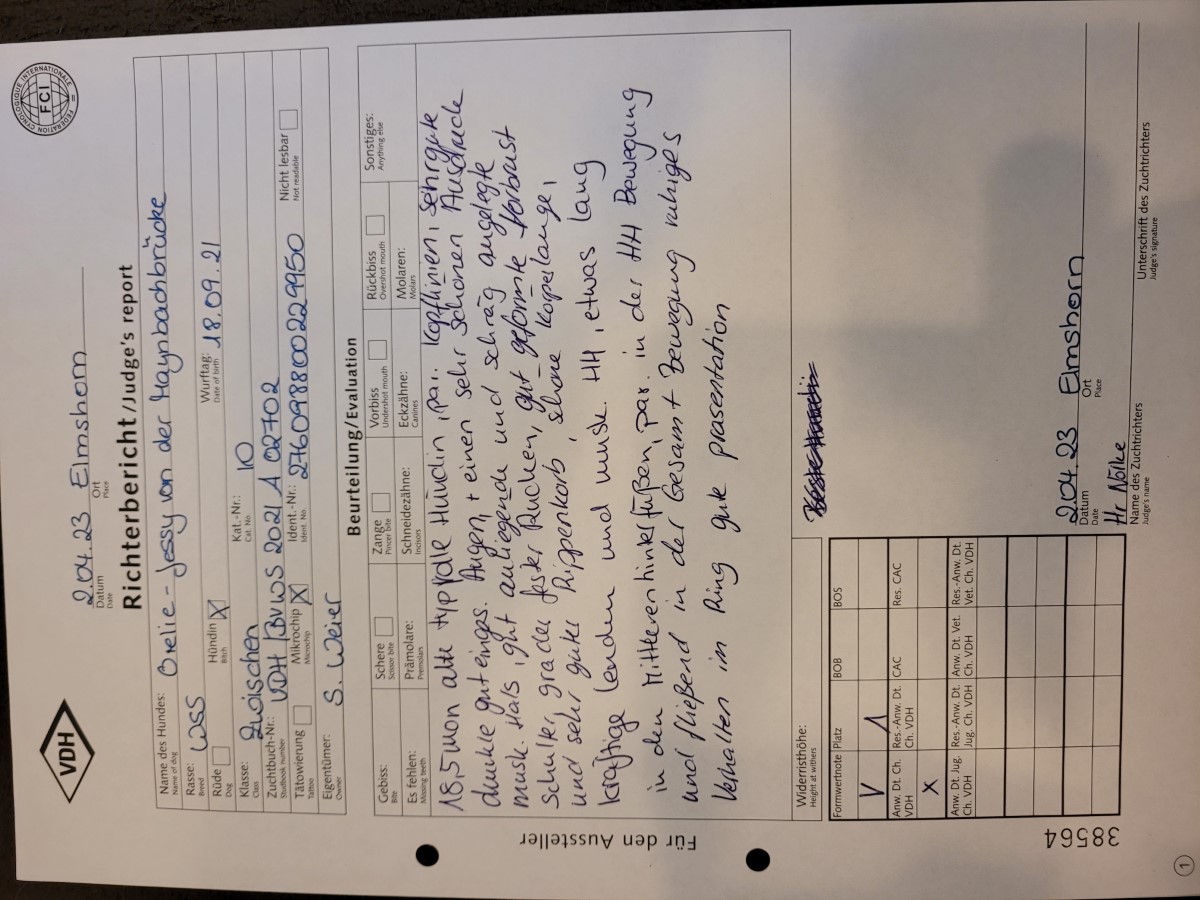 VDH
FEDERATION CYNOLOGIQUE INTERNATIONALE
FCI
2.04.23 Elmshorn
Datum Ort
Date Place
Richterbericht/Judge's report
Name des Hundes: Orelie-Jessy von der Haynbachbrücke
Name of dog
Rasse: WSS Wurftag: 18.09.21
Breed Date of birth
Rüde Hündin X Kat.-Nr.: 10
Dog Bitch Cat. No.
Klasse: Zwischen
Class
Zuchtbuch-Nr.: VDH/BVWS 2021 A 02702
Studbook number
Tätowierung Mikrochip X Ident.-Nr.: 276098800229950 Nicht lesbar
Tattoo Microchip Ident. No. Not readable
Eigentümer: S. Weier
Owner
Beurteilung/Evaluation
Gebiss: Schere Zange Vorbiss Rückbiss Sonstiges:
Bite Scissor bite Pincer bite Undershot mouth Overshot mouth Anything else
Es fehlen: Prämolare: Schneidezähne: Eckzähne: Molaren:
Missing teeth Premolars Incisors Canines Molars
18,5 mon alte typvolle Hündin, par. Kopflinien, sehr gute
dunkle gut einges. Augen, + einen sehr schönen Ausdruck
musk. Hals, gut anliegende und schräg angelegte
Schulter, grader fester Rücken, gut geformte Vorbrust
und sehr guter Rippenkorb, schöne Körperlänge,
kräftige Lenden und musk. HH, etwas lang
in den Mittlerenhinterfüßen, par. in der HH Bewegung
und fließend in der Gesamt Bewegung ruhiges
Verhalten im Ring gute präsentation
Widerristhöhe:
Height at withers
Formwertnote Platz BOB BOS
V 1
Anw. Dt. Ch. VDH Res.-Anw. Dt. Ch. VDH CAC Res. CAC
X
Anw. Dt. Jug. Ch. VDH Res.-Anw. Dt. Jug. Ch. VDH Anw. Dt. Vet. Ch. VDH Res.-Anw. Dt. Vet. Ch. VDH
2.04.23 Elmshorn
Datum Ort
Date Place
Hr Nölke
Name des Zuchtrichters Unterschrift des Zuchtrichters
Judge's name Judge's signature
Für den Aussteller
38564
1